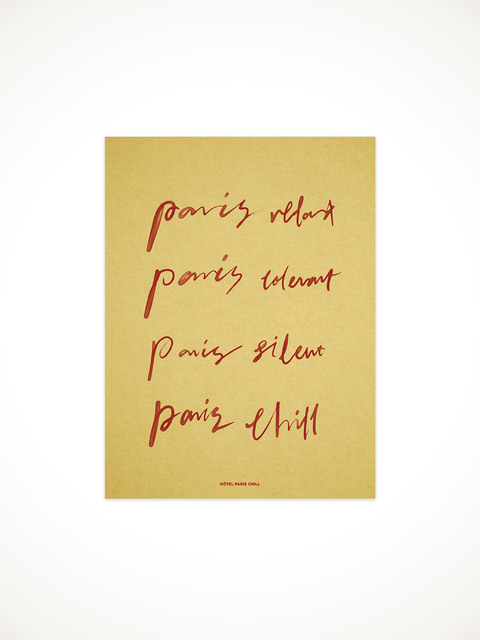 paris relaxt
paris tolerant
paris silent
paris chill
HÔTEL PARIS CHILL